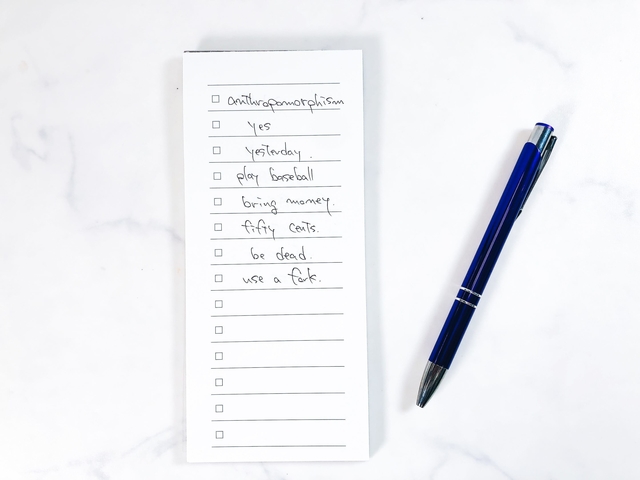 anthropomorphism
yes
yesterday.
play baseball
bring money.
fifty cents.
be dead.
use a fork.